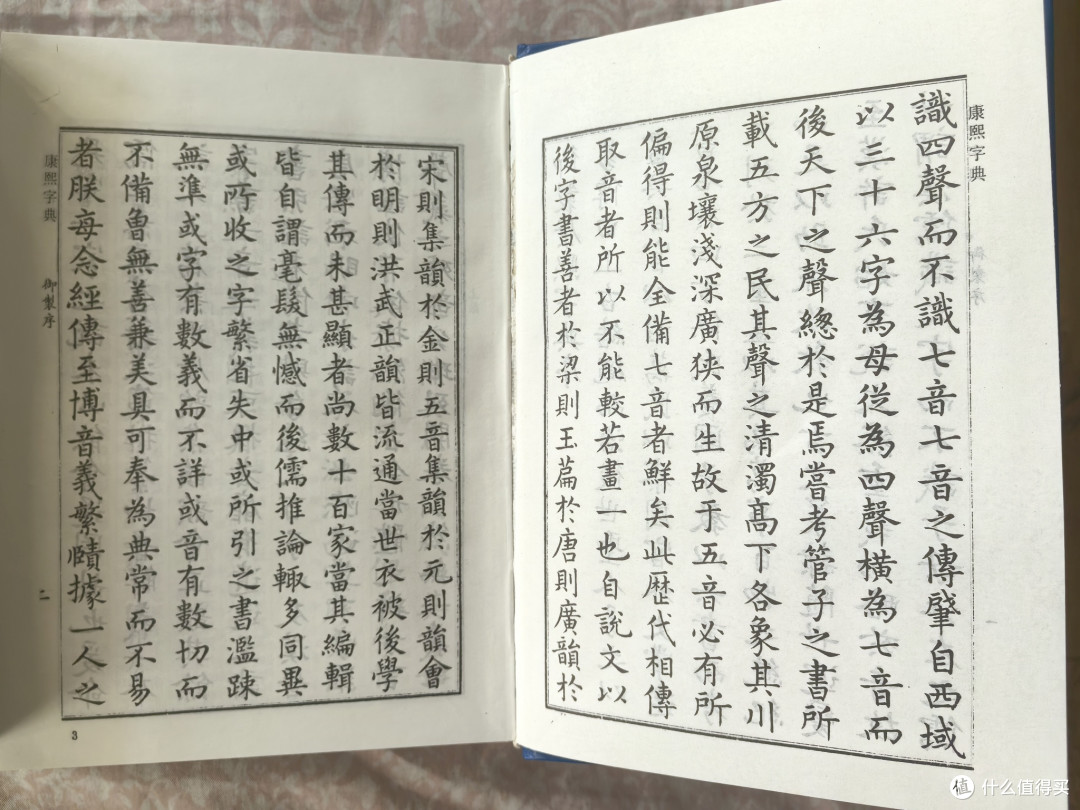 康熙字典
御製序
識四聲而不識七音七音之傳肇自西域
以三十六字為母從為四聲橫為七音而
後天下之聲總於是焉嘗考管子之書所
載五方之民其聲之清濁高下各象其川
原泉壤淺深廣狹而生故于五音必有所
偏得則能全備七音者鮮矣此歷代相傳
取音者所以不能較若畫一也自說文以
後字書善者於梁則玉篇於唐則廣韻於
宋則集韻於金則五音集韻於元則韻會
於明則洪武正韻皆流通當世衣被後學
其傳而未甚顯者尚數十百家當其編輯
皆自謂毫髮無憾而後儒推論輒多同異
或所收之字繁省失中或所引之書濫疎
無準或字有數義而不詳或音有數切而
不備曾無善兼美具可奉為典常而不易
者朕每念經傳至博音義繁賾據一人之
康熙字典
御製序
二
3
值 什么值得买